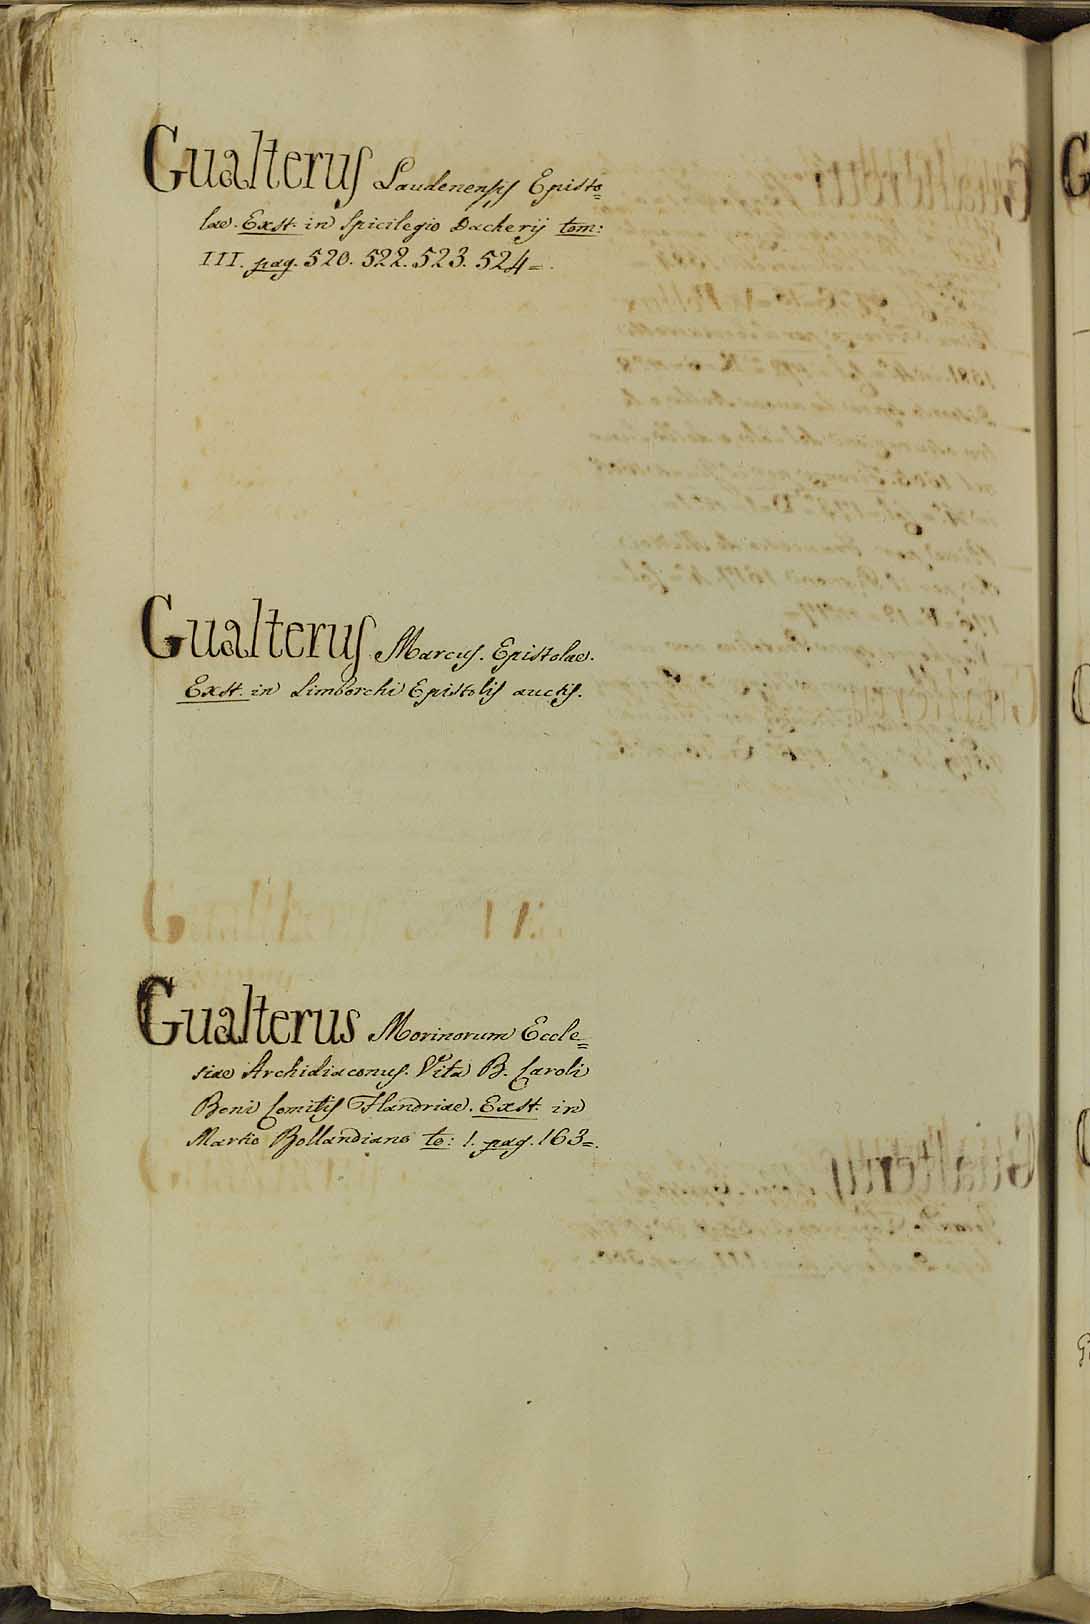 Gualterus Laudenensis Episto=
lae. Exst. in Spicilegio Dacherij tom:
III. pag. 520. 522. 523. 524=.
Gualterus Marcus. Epistolae.
Exst. in Limborchi Epistolis auctis.
Gualterus Morinorum Eccle=
siae Archidiaconus. Vita B. Caroli
Boni Comitis Flandriae. Exst. in
Martio Bollandiano to: 1. pag. 163=.